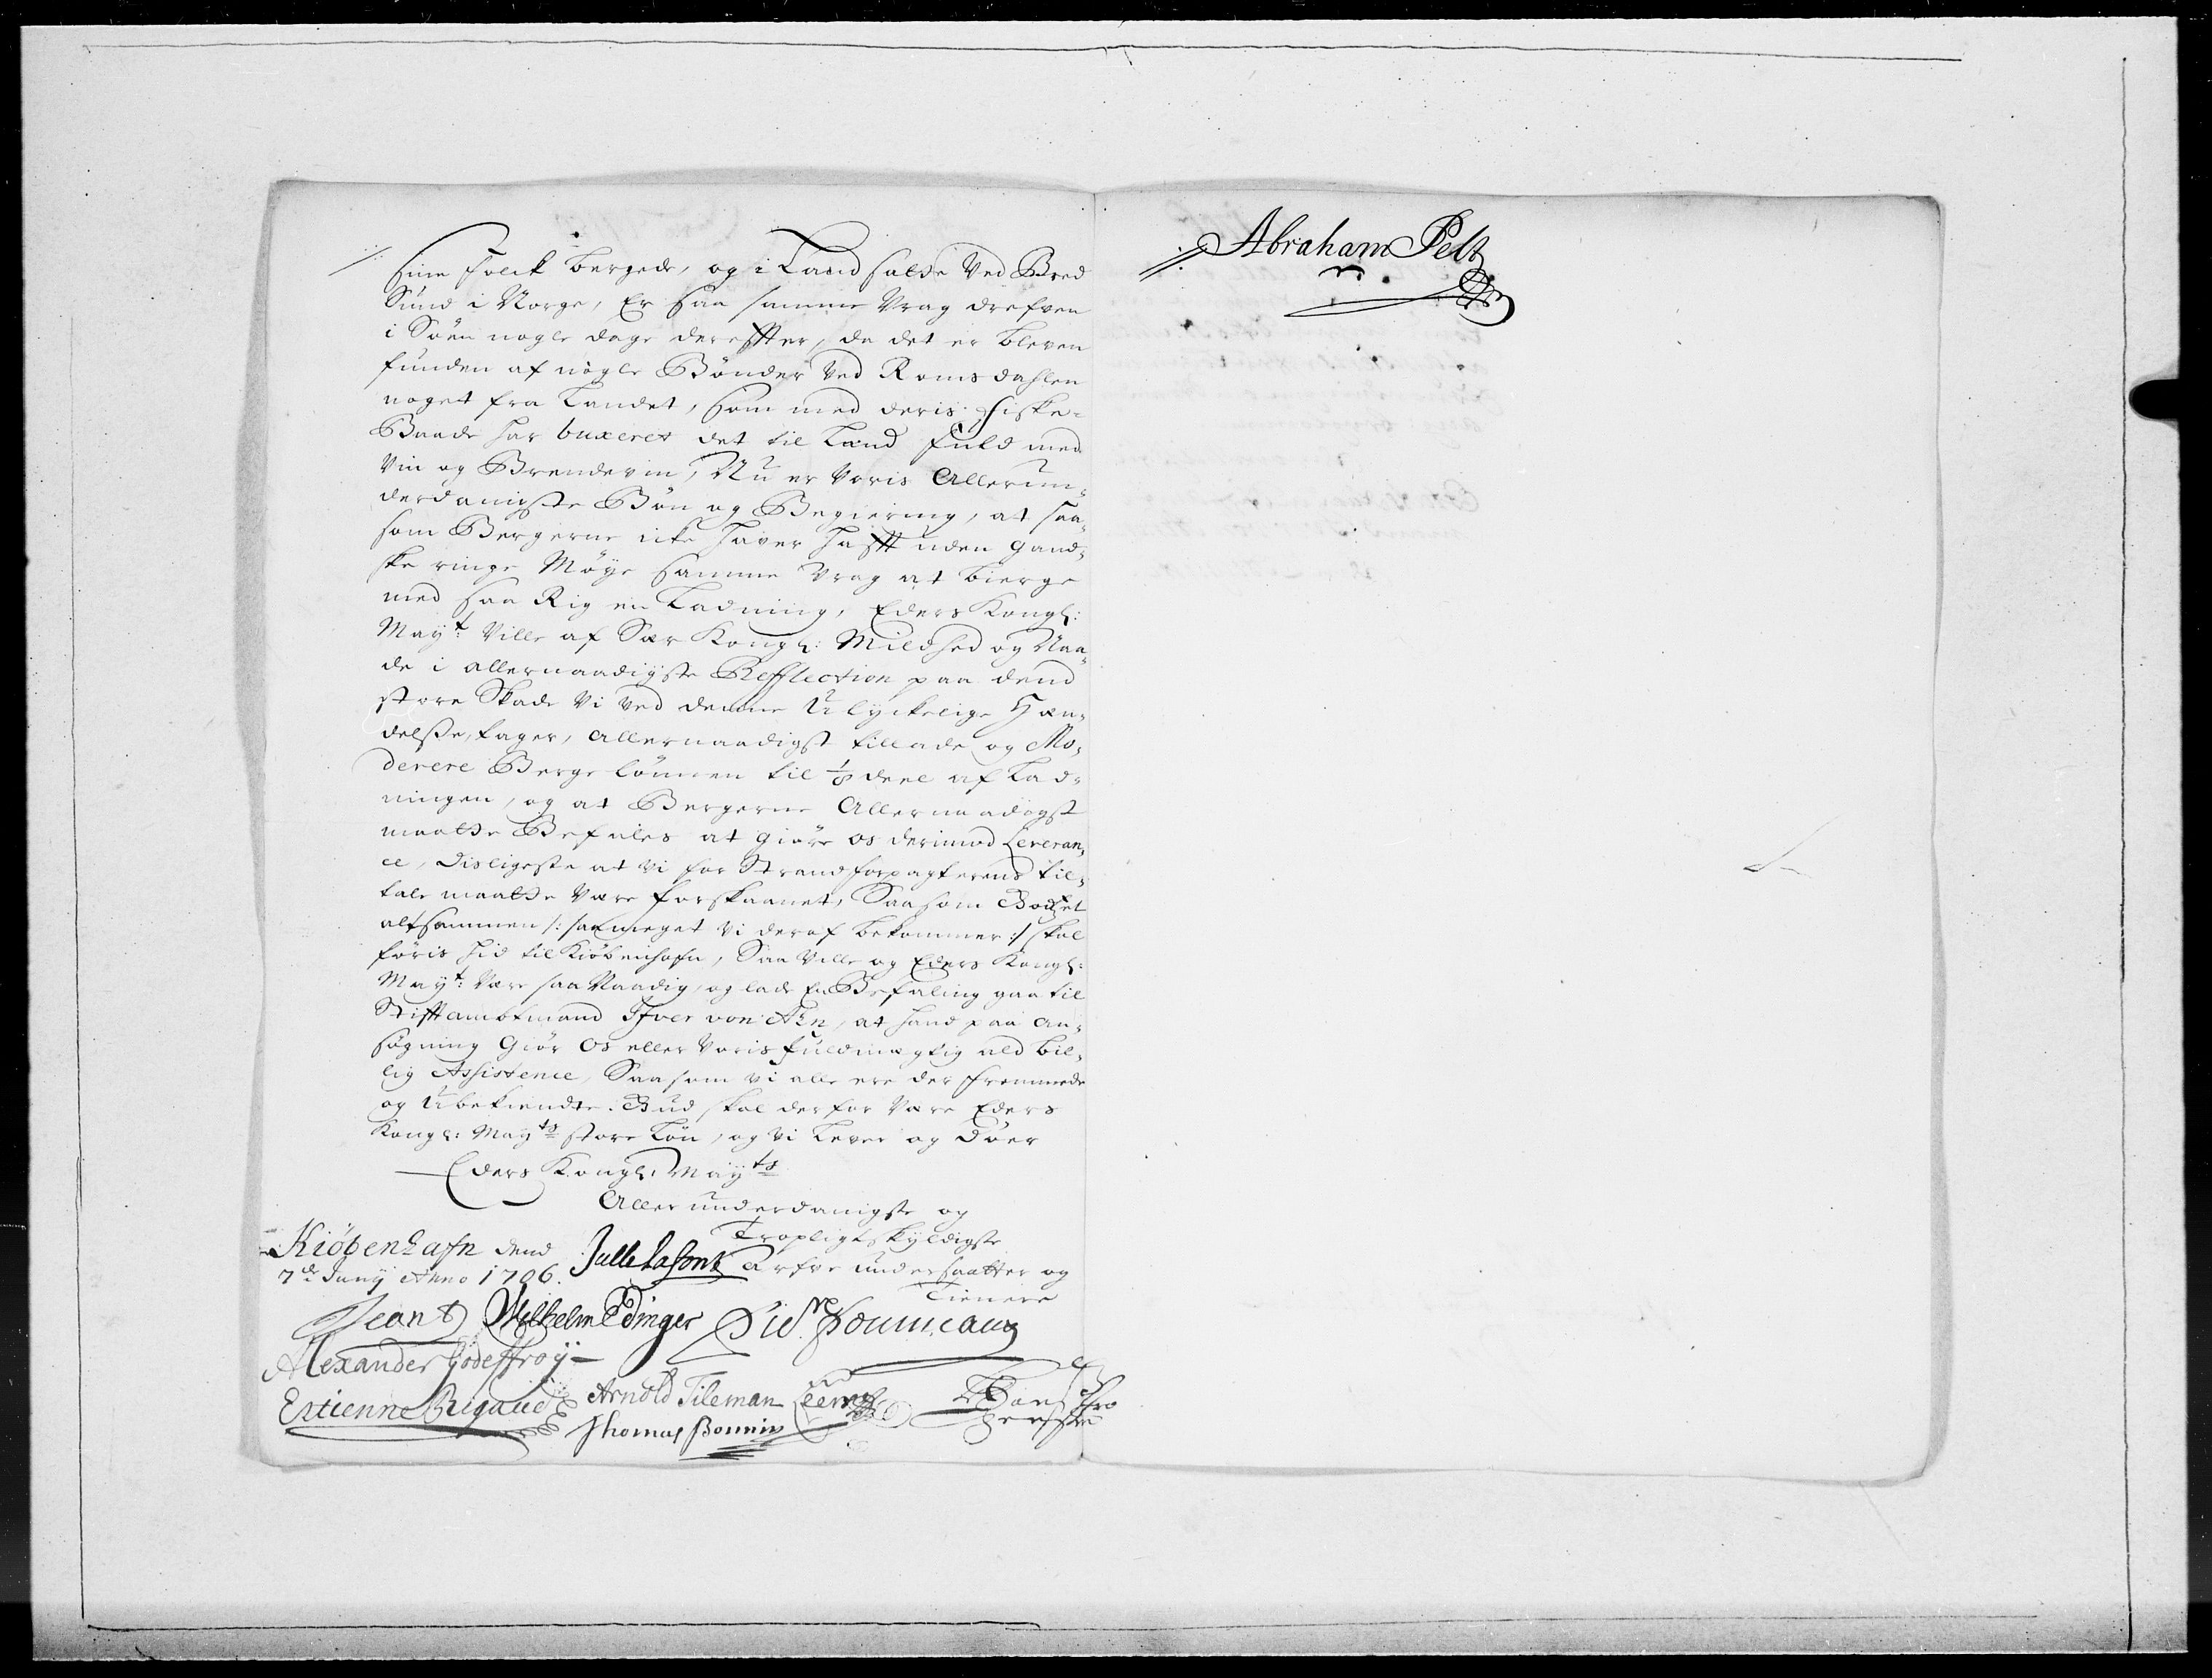 sine Folck bergede, og i Land satte ved Bred
Sund i Norge, Er saa samme Vrag drefven
i Søen nogle dage derefter, da det er bleven
funden af nogle Bønder ved Romsdahlen
noget fra Landet, som med deris Fiske-
Baade har buxeret det til Land fuld med
Vin og Brendevin, Nu er voris Allerun-
derdanigste Bøn og Begiering, at saa-
som Bergerne icke haver hafft uden gand-
ske ringe Møye samme Vrag at bierge
med saa Rig en Ladning, Eders Kongl:
Mayt: ville af Sær Kongl: Mildhed og Naa-
de i allernaadigste Refflection paa dend
store Skade vi ved denne Ulyckelige Hæn-
delse, tager, allernaadigst tillade og Mo-
derere Berge lønnen til 1/8 deel af Lad-
ningen, og at Bergerne Allernaadigst
maatte Befales at giøre os derimod Leveran-
ce, Disligeste at vi for Strandforpagterens til-
tale maatte være forskaanet, Saasom Godset
altsammen /: saa meget vi deraf bekommer :/ skal
føris hid til Kiøbenhafn, Saa ville og Eders Kongl:
Mayt: være saa Naadig, og lade En Befaling gaa til
Stifftambtmand Ifver von Ahn, at hand paa an-
søgning giør os eller voris fuldmægtig ald bil-
lig Assistence, Saasom vi alle ere der fremmede
og Ubekiendte. Gud skal derfor være Eders
Kongl: Mayts store Løn, og vi Lever og Døer
Eders Kongl: Mayts
Allerunderdanigste og
Tropligtskyldigste
Kiøbenhafn dend Arfve undersaatter og
7de Junij Anno 1706. Tienere
Wilhelm Edinger
Alexander Godeffroy
Estienne Rigaud Arnold Tileman
Thomas Bonnin
Abraham Pelt